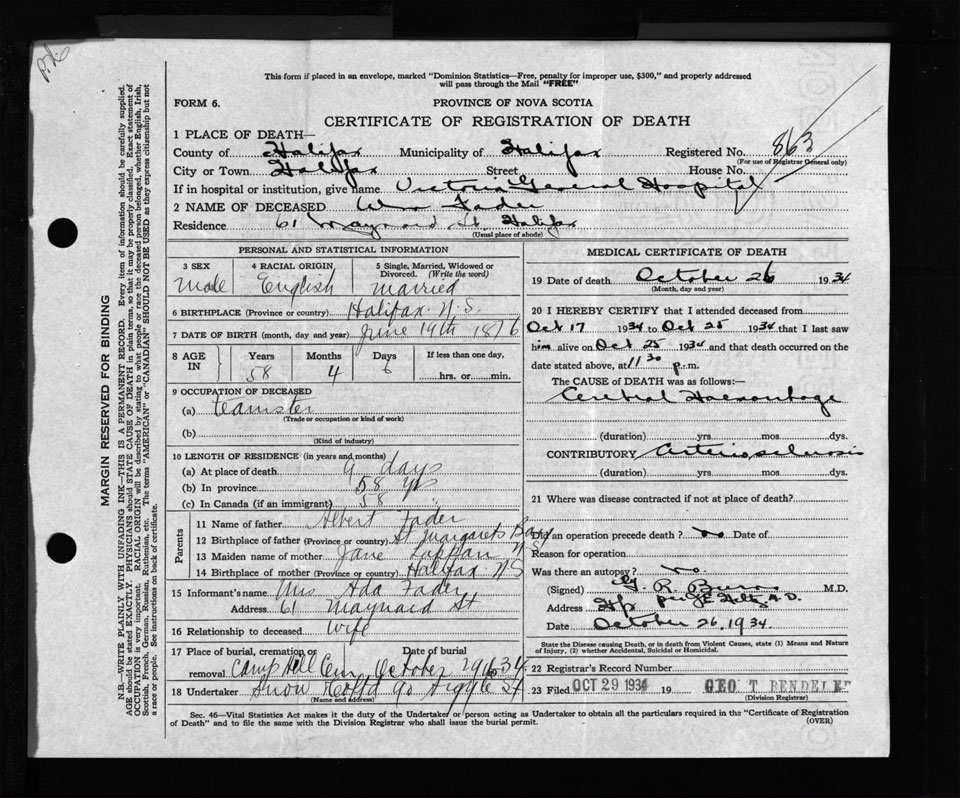 This form if placed in an envelope, marked "Dominion Statistics—Free, penalty for improper use, $300," and properly addressed
will pass through the Mail "FREE"
FORM 6.
PROVINCE OF NOVA SCOTIA
CERTIFICATE OF REGISTRATION OF DEATH
1 PLACE OF DEATH—
County of Halifax Municipality of Halifax Registered No. 863
(For use of Registrar General only)
City or Town Halifax Street House No.
If in hospital or institution, give name Victoria General Hospital
2 NAME OF DECEASED Wm Fader
Residence 61 Maynard St. Halifax
(Usual place of abode)
PERSONAL AND STATISTICAL INFORMATION
3 SEX 4 RACIAL ORIGIN 5 Single, Married, Widowed or Divorced. (Write the word)
Male English Married
6 BIRTHPLACE (Province or country) Halifax N.S.
7 DATE OF BIRTH (month, day and year) June 19th 1876
8 AGE IN Years Months Days If less than one day,
58 4 6 hrs. or min.
9 OCCUPATION OF DECEASED
(a) teamster
(Trade or occupation or kind of work)
(b)
(Kind of industry)
10 LENGTH OF RESIDENCE (in years and months)
(a) At place of death 9 days
(b) In province 58 yrs
(c) In Canada (if an immigrant) 58
Parents
11 Name of father Albert Fader
12 Birthplace of father (Province or country) St Margarets Bay
13 Maiden name of mother Jane
14 Birthplace of mother (Province or country) Halifax N.S
15 Informant's name Mrs Ada Fader
Address 61 Maynard St
16 Relationship to deceased Wife
17 Place of burial, cremation or removal Date of burial
Camp Hill Cem October 29 1934
18 Undertaker Snow & Co Ltd 90 Argyle St
(Name and address)
MEDICAL CERTIFICATE OF DEATH
19 Date of death October 26 1934
(Month, day and year)
20 I HEREBY CERTIFY that I attended deceased from
Oct 17 1934 to Oct 25 1934 that I last saw
him alive on Oct 25 1934 and that death occurred on the
date stated above, at 11 30 p.m.
The CAUSE of DEATH was as follows:—
Cerebral Haemorrhage
(duration) yrs. mos. dys.
CONTRIBUTORY Arteriosclerosis
(duration) yrs. mos. dys.
21 Where was disease contracted if not at place of death?
Did an operation precede death? no Date of
Reason for operation
Was there an autopsy? no.
(Signed) G R Burns M.D.
Address
Date October 26. 1934.
State the Disease causing Death, or in death from Violent Causes, state (1) Means and Nature
of Injury, (2) whether Accidental, Suicidal or Homicidal.
22 Registrar's Record Number
23 Filed OCT 29 1934 19 GEO T BENDELL
(Division Registrar)
Sec. 46—Vital Statistics Act makes it the duty of the Undertaker or person acting as Undertaker to obtain all the particulars required in the "Certificate of Registration
of Death" and to file the same with the Division Registrar who shall issue the burial permit. (OVER)
MARGIN RESERVED FOR BINDING
N.B.—WRITE PLAINLY WITH UNFADING INK—THIS IS A PERMANENT RECORD. Every item of information should be carefully supplied.
AGE should be stated EXACTLY. PHYSICIANS should STATE CAUSE OF DEATH in plain terms, so that it may be properly classified. Exact statement of
OCCUPATION is very important. RACIAL ORIGIN will be described by stating to what people or race the deceased person belonged, whether English, Irish,
Scottish, French, German, Russian, Ruthenian, etc. The terms "AMERICAN" or "CANADIAN" SHOULD NOT BE USED as they express citizenship but not
a race or people. See instructions on back of certificate.